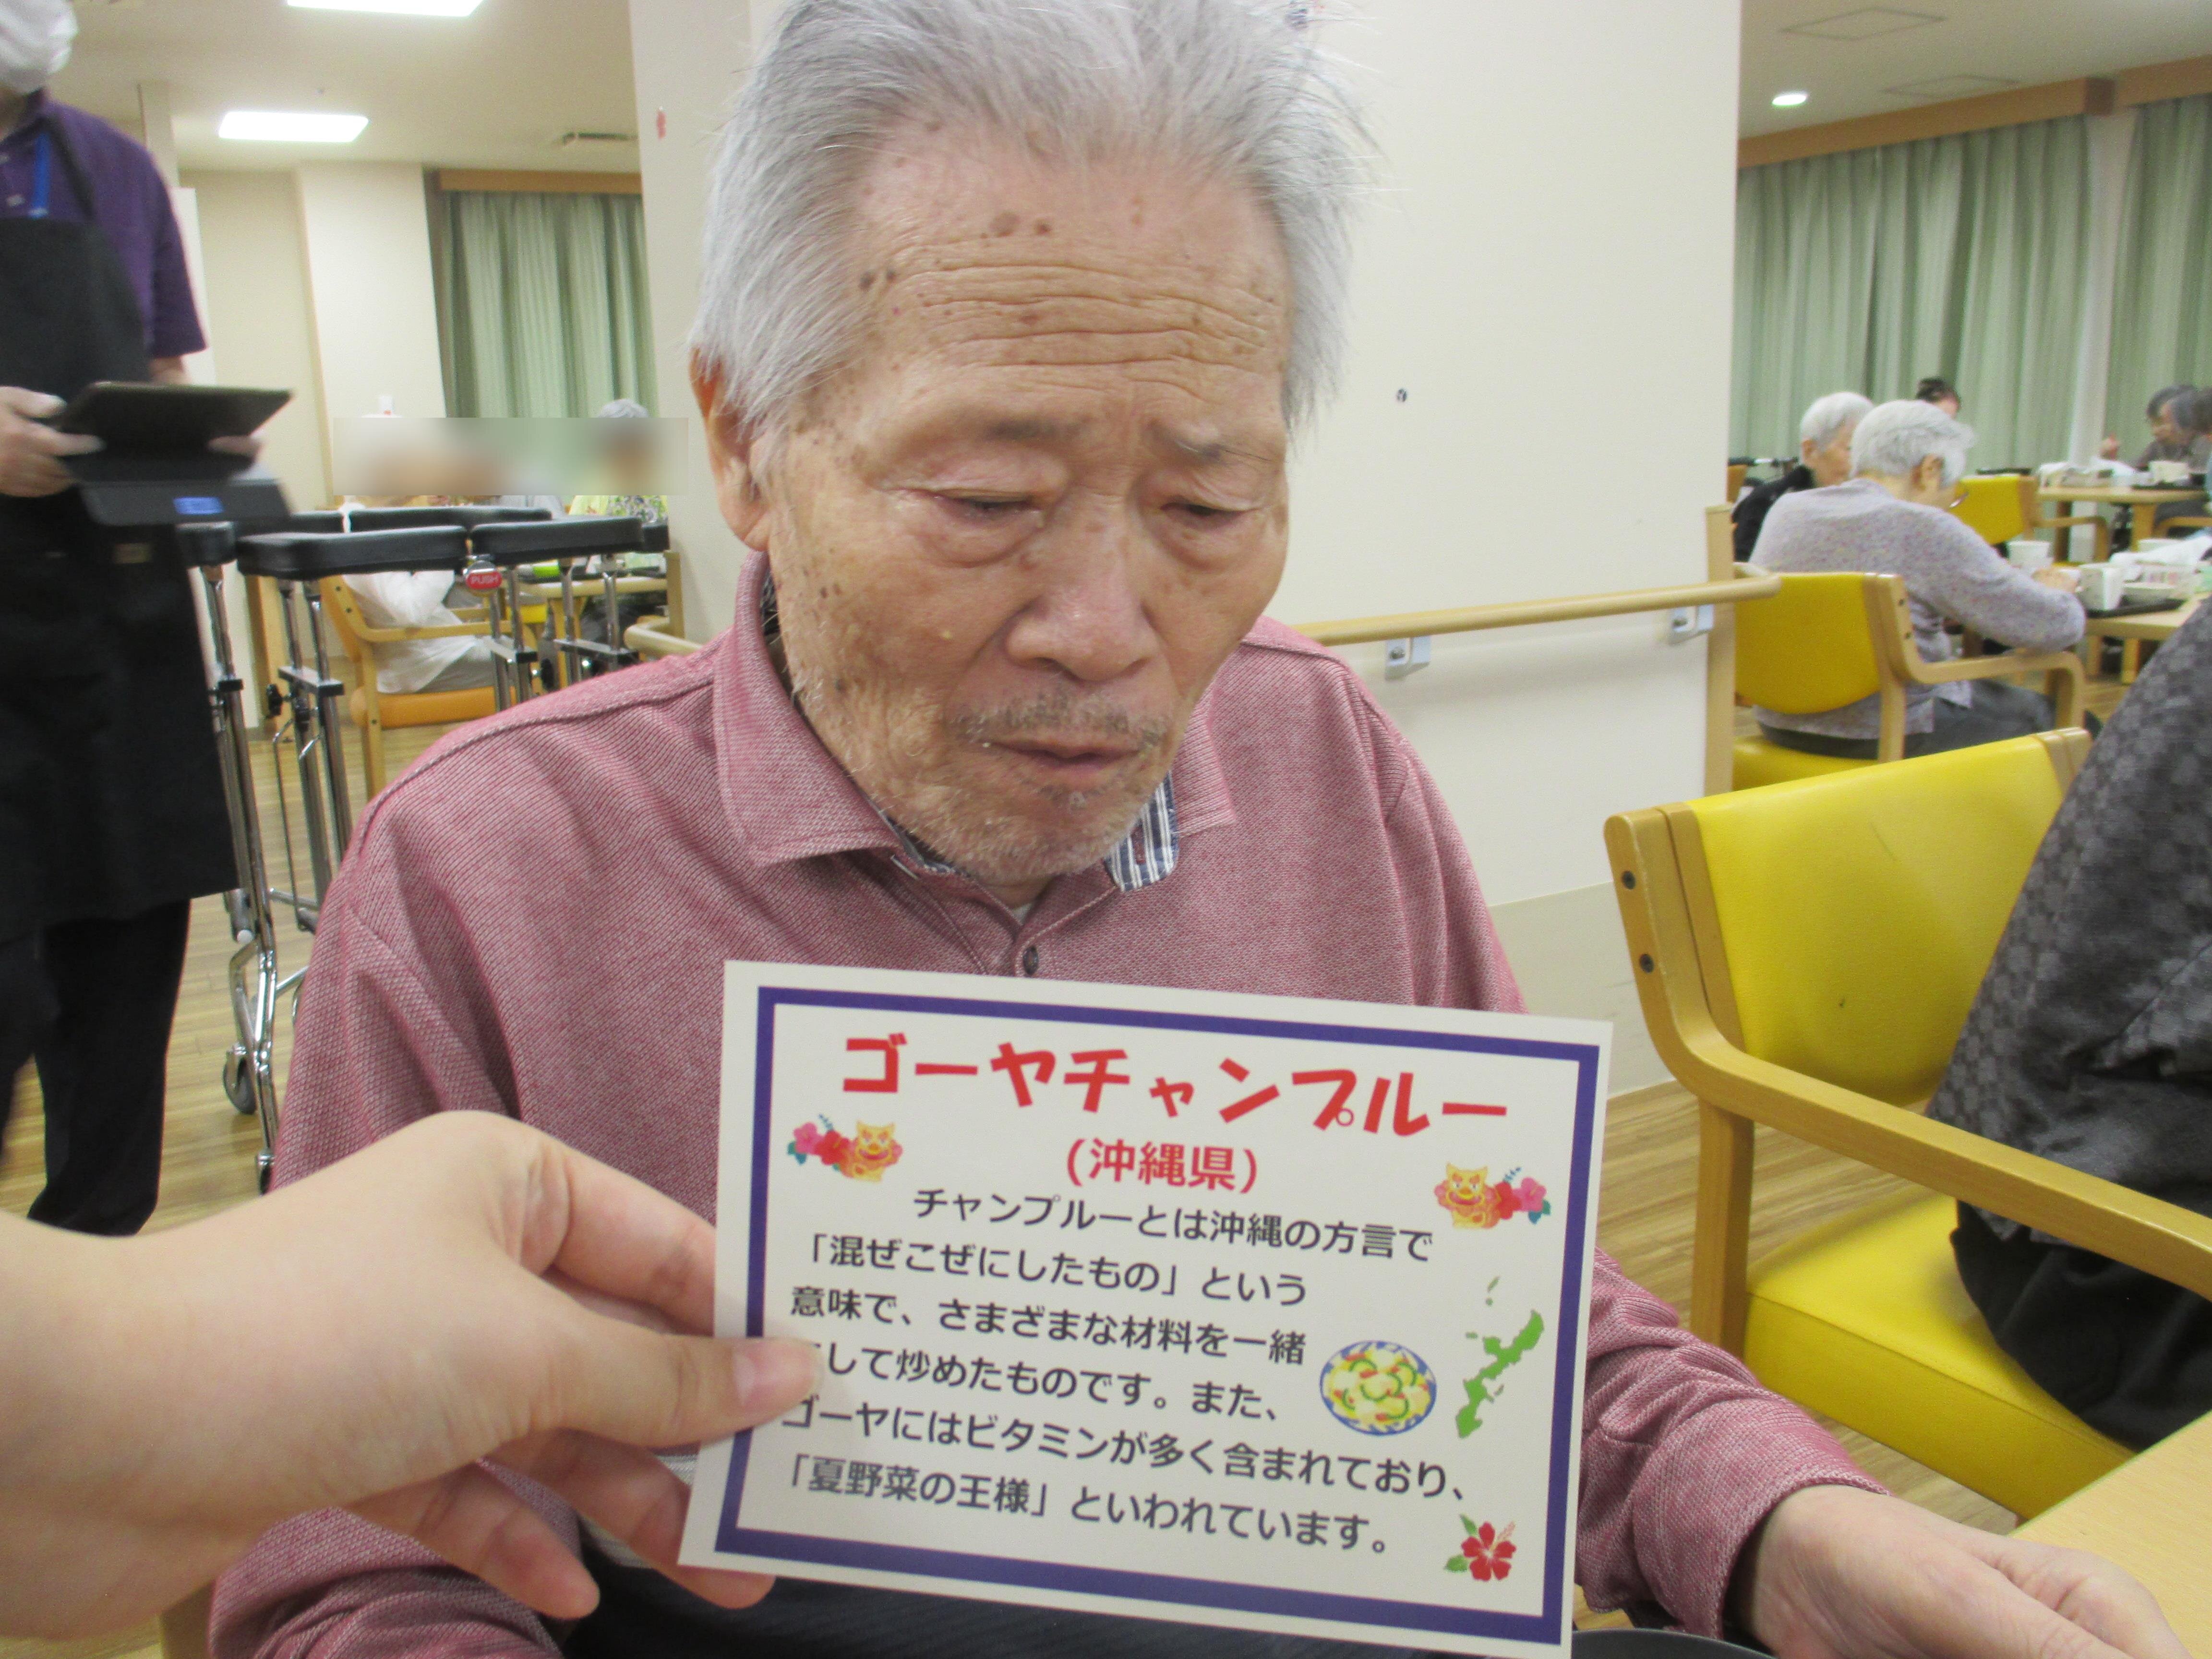 ゴーヤチャンプルー
(沖縄県)
チャンプルーとは沖縄の方言で
「混ぜこぜにしたもの」という
意味で、さまざまな材料を一緒
して炒めたものです。また、
ゴーヤにはビタミンが多く含まれており、
「夏野菜の王様」といわれています。
PUSH